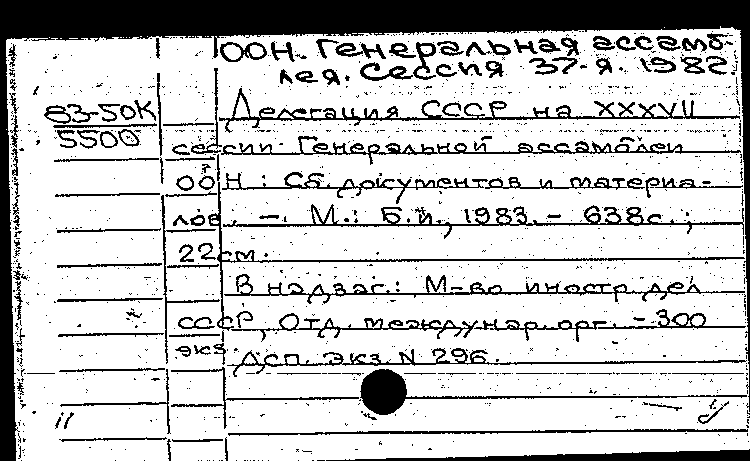 ООН. Генеральная ассамб-
лея. Сессия 37-я. 1982.
83-50К
5500
Делегация СССР на XXXVII
сессии Генеральной ассамблеи
ООН : Сб. документов и материа-
лов. — М.: Б.и., 1983. – 638с. ;
22см.
В надзаг.: М-во иностр. дел
СССР, Отд. междунар. орг. – 300
экз. Дсп. Экз. N 296.